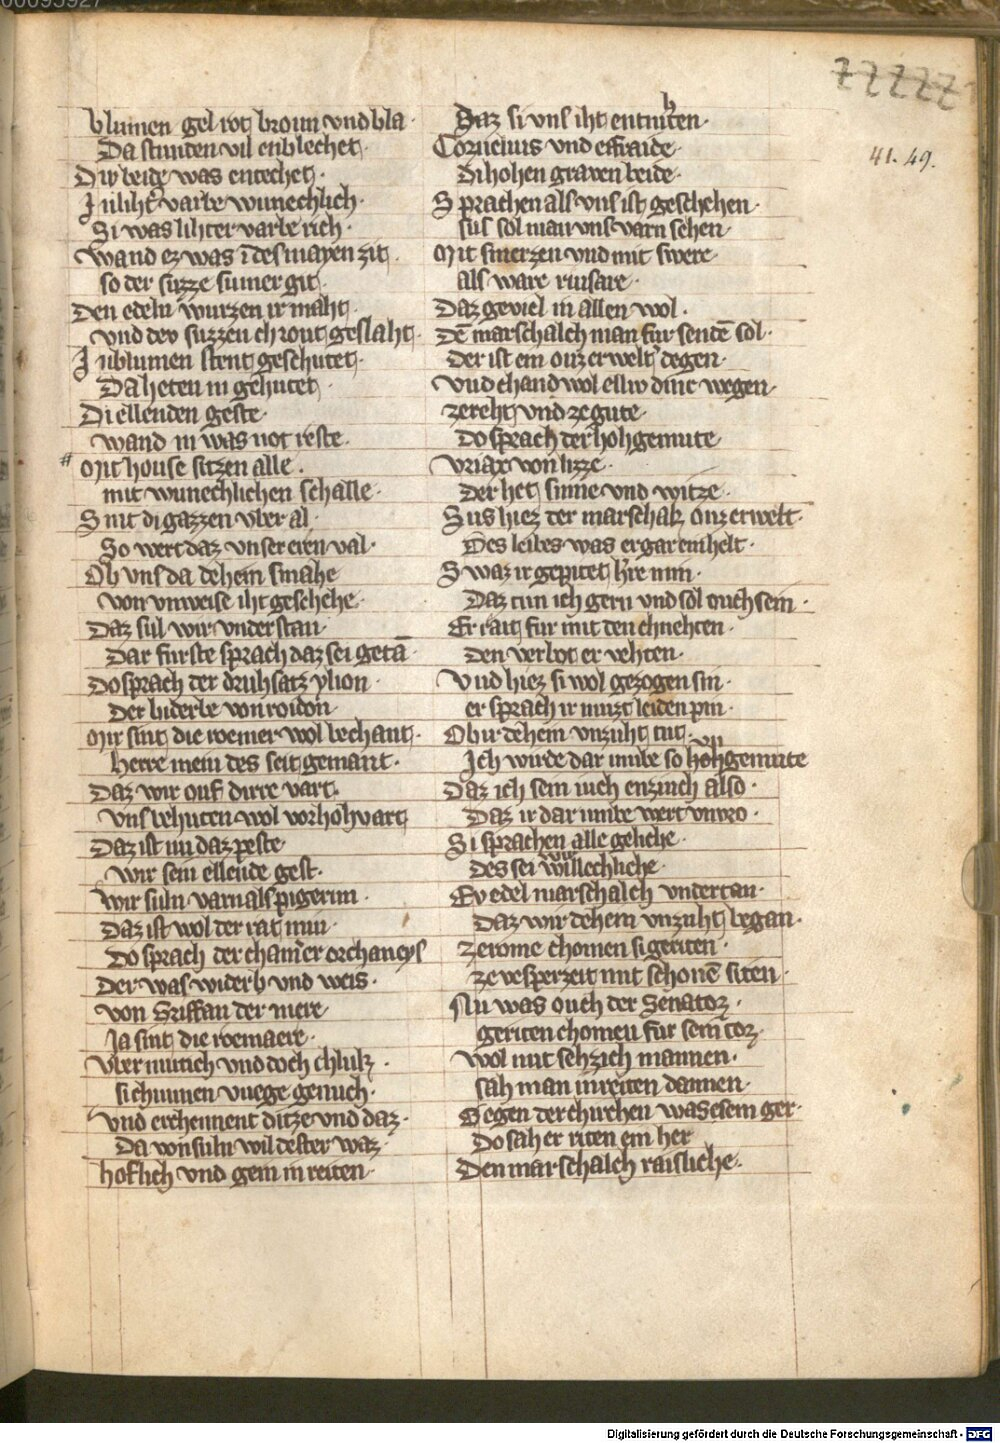 00095927
77777
41. 49.
blumen gel rot broun vnd bla ·
Da stunden vil enblechet ·
Div beide was entechet ·
In lihter varbe wunechlich ·
Si was lihter varbe rich ·
Wand ez was ī des mayen zit ·
so der suzze sumer git ·
Den edeln wurzen ir maht ·
vnd den suzzen chrout geslaht ·
In blumen stent geschutet ·
Da heten in gehutet ·
Di ellenden geste ·
wand in was not reste ·
# Mit house sitzen alle ·
mit wunechlichen schalle ·
Sint di gazzen vber al ·
So wert daz vnser eren val ·
Ob vns da dehein smahe
von vnweise iht geschehe ·
Daz sul wir vnderstan ·
Dar furste sprach daz sei getā
Do sprach der druhsatz ylion ·
Der biderbe von roidon
Mir sint die roemer wol bechant ·
Herre mein des seit gemant ·
Daz wir ouf dirre vart ·
vns behuten wol vor hohvart
Daz ist nu daz peste
wir sein ellende gest ·
Wir suln varn als pigerim ·
Daz ist wol der rat min ·
Do sprach der cham̄er orchaneys
Der was widerb vnd weis ·
von Griffan der mere ·
Ja sint die roemaere ·
Vber mutich vnd doch chluk ·
si chunnen vuege genuch ·
vnd erchennent ditze vnd daz ·
Da von suln wil dester waz
hoflich vnd gem in reiten ·
Daz si vns iht entnibten ·
Cornelius vnd effraide ·
Di hohen graven beide ·
Sprachen als vns ist geschehen ·
sus sol man vns varn sehen ·
Mit smerzen vnd mit swere ·
als ware riusare ·
Daz geviel in allen wol ·
Dē marschalch man fur sendē sol ·
Der ist ein ouzerwelt degen ·
Vnd chand wol elliv dinc wegen ·
zereht vnd ze gute ·
Do sprach der hohgemute
Vriax von lizze ·
Der het sinne vnd witze ·
Sus hiez der marschalk ouzerwelt ·
Des leibes was er gar ein helt ·
Swaz ir gepitet h're min ·
Daz tun ich gern vnd sol ouch sein ·
Er rait fur mit den chnehten ·
Den verbot er vehten ·
Vnd hiez si wol gezogen sin ·
er sprach ir muzt leiden pin ·
Ob ir dehein vnzuht tut ·
vn
Ich wirde dar umbe so hohgemute
Daz ich sein iuch enzinch also ·
Daz ir dar umbe wert vnvro ·
Si sprachen alle geliche ·
des sei willechliche ·
Ev edel marschalch vndertan ·
Daz wir dehein vnzuht began ·
Ze rome chomen si geriten ·
ze vesperzeit mit schonē siten ·
Nu was ouch der Senator ·
geriten chomen fur sein tor ·
Wol mit sehzich mannen ·
sah man in reiten dannen ·
Gegen der chirchen was esem ger ·
Do sah er riten ein her
Den marschalch raisliche ·
Digitalisierung gefördert durch die Deutsche Forschungsgemeinschaft - DFG